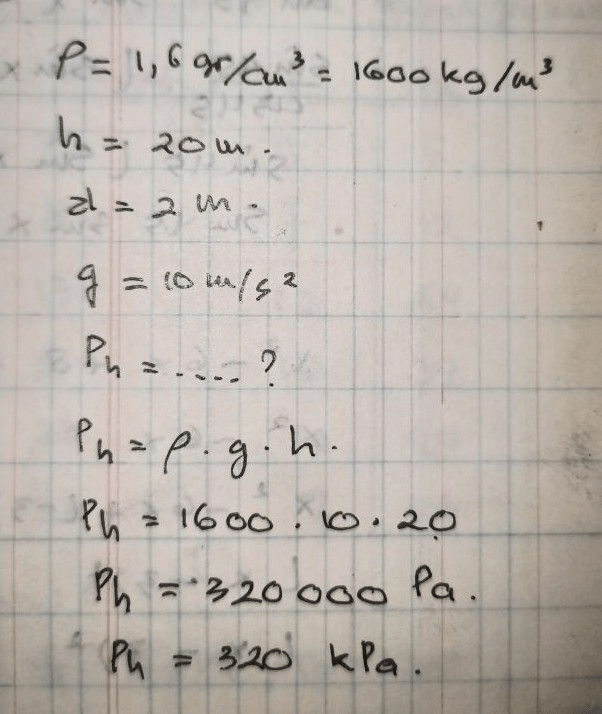 ρ = 1,6 gr/cm³ = 1600 kg/m³
h = 20 m.
d = 2 m.
g = 10 m/s²
Ph = ..... ?
Ph = ρ . g . h .
Ph = 1600 . 10 . 20
Ph = 320 000 Pa.
Ph = 320 kPa.